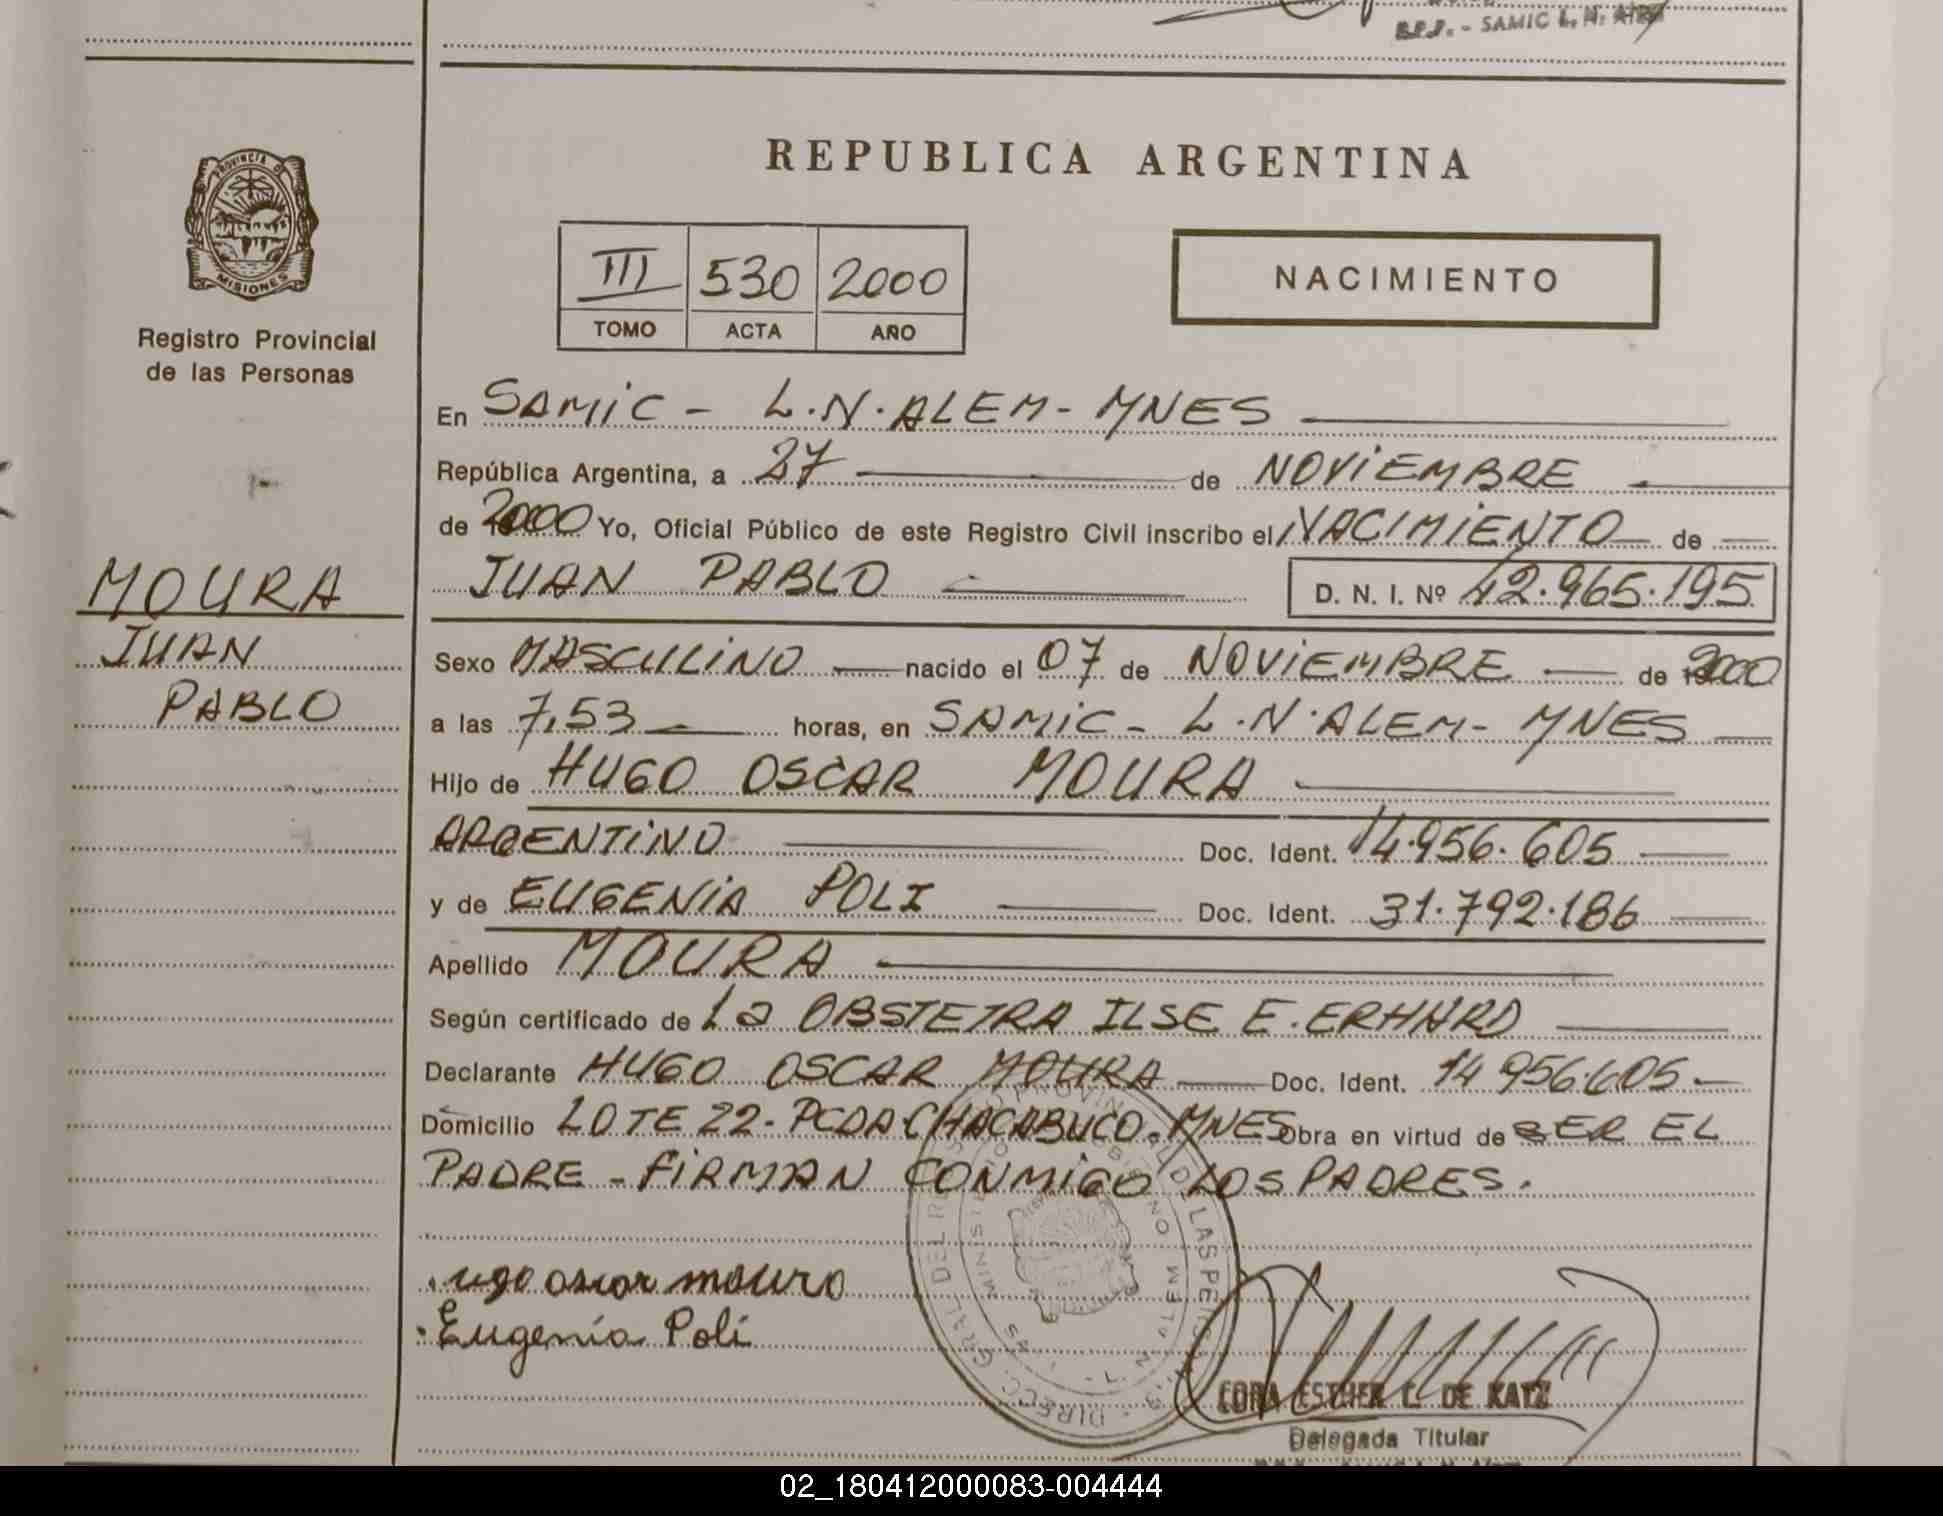 S.P.P. - SAMIC L. N. Alem
REPUBLICA ARGENTINA
PROVINCIA DE
MISIONES
Registro Provincial
de las Personas
III 530 2000
TOMO ACTA AÑO
NACIMIENTO
En SAMIC - L.N. ALEM - MNES
República Argentina, a 27 de NOVIEMBRE
de 2000 Yo, Oficial Público de este Registro Civil inscribo el NACIMIENTO de
JUAN PABLO D. N. I. Nº 42.965.195
MOURA
JUAN
PABLO
Sexo MASCULINO nacido el 07 de NOVIEMBRE de 2000
a las 7,53 horas, en SAMIC - L.N. ALEM - MNES
Hijo de HUGO OSCAR MOURA
ARGENTINO Doc. Ident. 14.956.605
y de EUGENIA POLI Doc. Ident. 31.792.186
Apellido MOURA
Según certificado de La OBSTETRA ILSE E. ERHARD
Declarante HUGO OSCAR MOURA Doc. Ident. 14.956.605
Domicilio LOTE 22 - PCDA CHACABUCO - MNES Obra en virtud de SER EL
PADRE - FIRMAN CONMIGO LOS PADRES.
ugo oscar moura
Eugenia Poli
CORA ESTHER C. DE KATZ
Delegada Titular
02_180412000083-004444